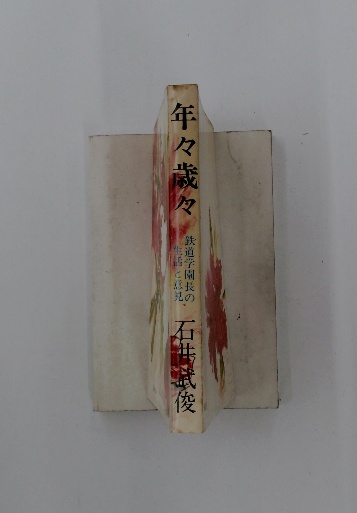 年々歳々
鉄道学園長の
生活と意見
石井武俊